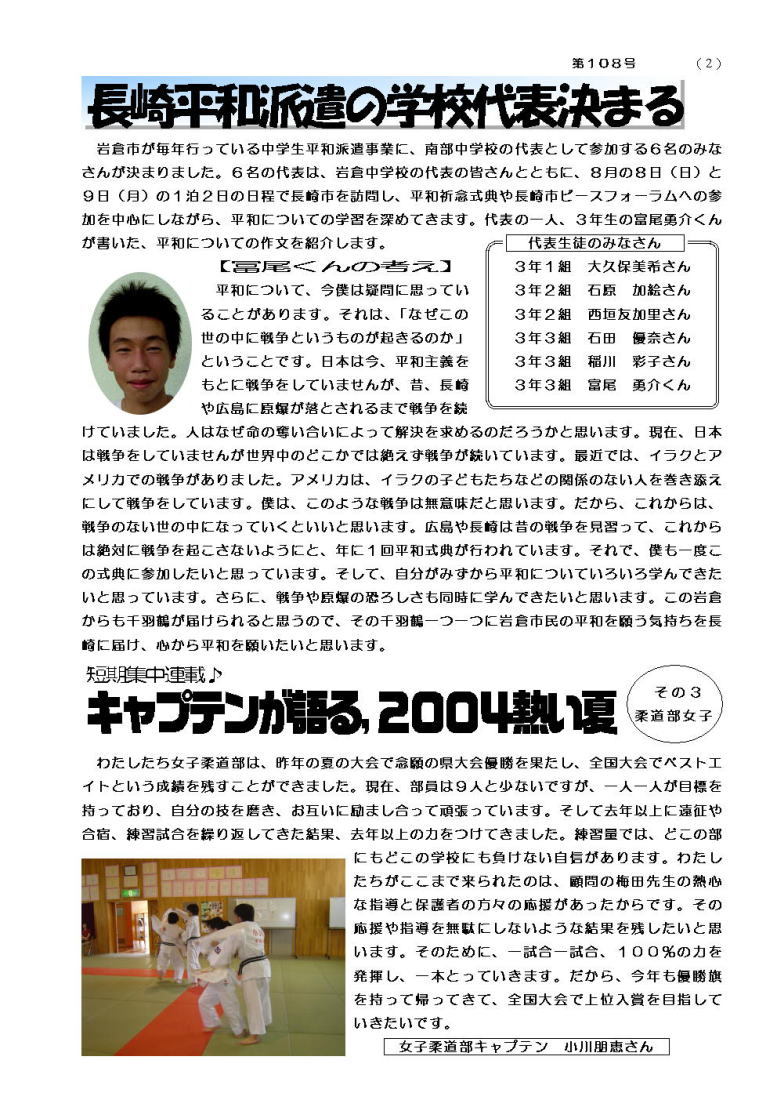 第108号　（2）
長崎平和派遣の学校代表決まる
岩倉市が毎年行っている中学生平和派遣事業に、南部中学校の代表として参加する6名のみな
さんが決まりました。6名の代表は、岩倉中学校の代表の皆さんとともに、8月の8日（日）と
9日（月）の1泊2日の日程で長崎市を訪問し、平和祈念式典や長崎市ピースフォーラムへの参
加を中心にしながら、平和についての学習を深めてきます。代表の一人、3年生の富尾勇介くん
が書いた、平和についての作文を紹介します。
代表生徒のみなさん
3年1組　大久保美希さん
3年2組　石原　加絵さん
3年2組　西垣友加里さん
3年3組　石田　優奈さん
3年3組　稲川　彩子さん
3年3組　富尾　勇介くん
【冨尾くんの考え】
平和について、今僕は疑問に思ってい
ることがあります。それは、「なぜこの
世の中に戦争というものが起きるのか」
ということです。日本は今、平和主義を
もとに戦争をしていませんが、昔、長崎
や広島に原爆が落とされるまで戦争を続
けていました。人はなぜ命の奪い合いによって解決を求めるのだろうかと思います。現在、日本
は戦争をしていませんが世界中のどこかでは絶えず戦争が続いています。最近では、イラクとア
メリカでの戦争がありました。アメリカは、イラクの子どもたちなどの関係のない人を巻き添え
にして戦争をしています。僕は、このような戦争は無意味だと思います。だから、これからは、
戦争のない世の中になっていくといいと思います。広島や長崎は昔の戦争を見習って、これから
は絶対に戦争を起こさないようにと、年に1回平和式典が行われています。それで、僕も一度こ
の式典に参加したいと思っています。そして、自分がみずから平和についていろいろ学んできた
いと思っています。さらに、戦争や原爆の恐ろしさも同時に学んできたいと思います。この岩倉
からも千羽鶴が届けられると思うので、その千羽鶴一つ一つに岩倉市民の平和を願う気持ちを長
崎に届け、心から平和を願いたいと思います。
短期集中連載♪
キャプテンが語る,2004熱い夏
その3
柔道部女子
わたしたち女子柔道部は、昨年の夏の大会で念願の県大会優勝を果たし、全国大会でベストエ
イトという成績を残すことができました。現在、部員は9人と少ないですが、一人一人が目標を
持っており、自分の技を磨き、お互いに励まし合って頑張っています。そして去年以上に遠征や
合宿、練習試合を繰り返してきた結果、去年以上の力をつけてきました。練習量では、どこの部
にもどこの学校にも負けない自信があります。わたし
たちがここまで来られたのは、顧問の梅田先生の熱心
な指導と保護者の方々の応援があったからです。その
応援や指導を無駄にしないような結果を残したいと思
います。そのために、一試合一試合、100％の力を
発揮し、一本とっていきます。だから、今年も優勝旗
を持って帰ってきて、全国大会で上位入賞を目指して
いきたいです。
女子柔道部キャプテン　小川朋恵さん